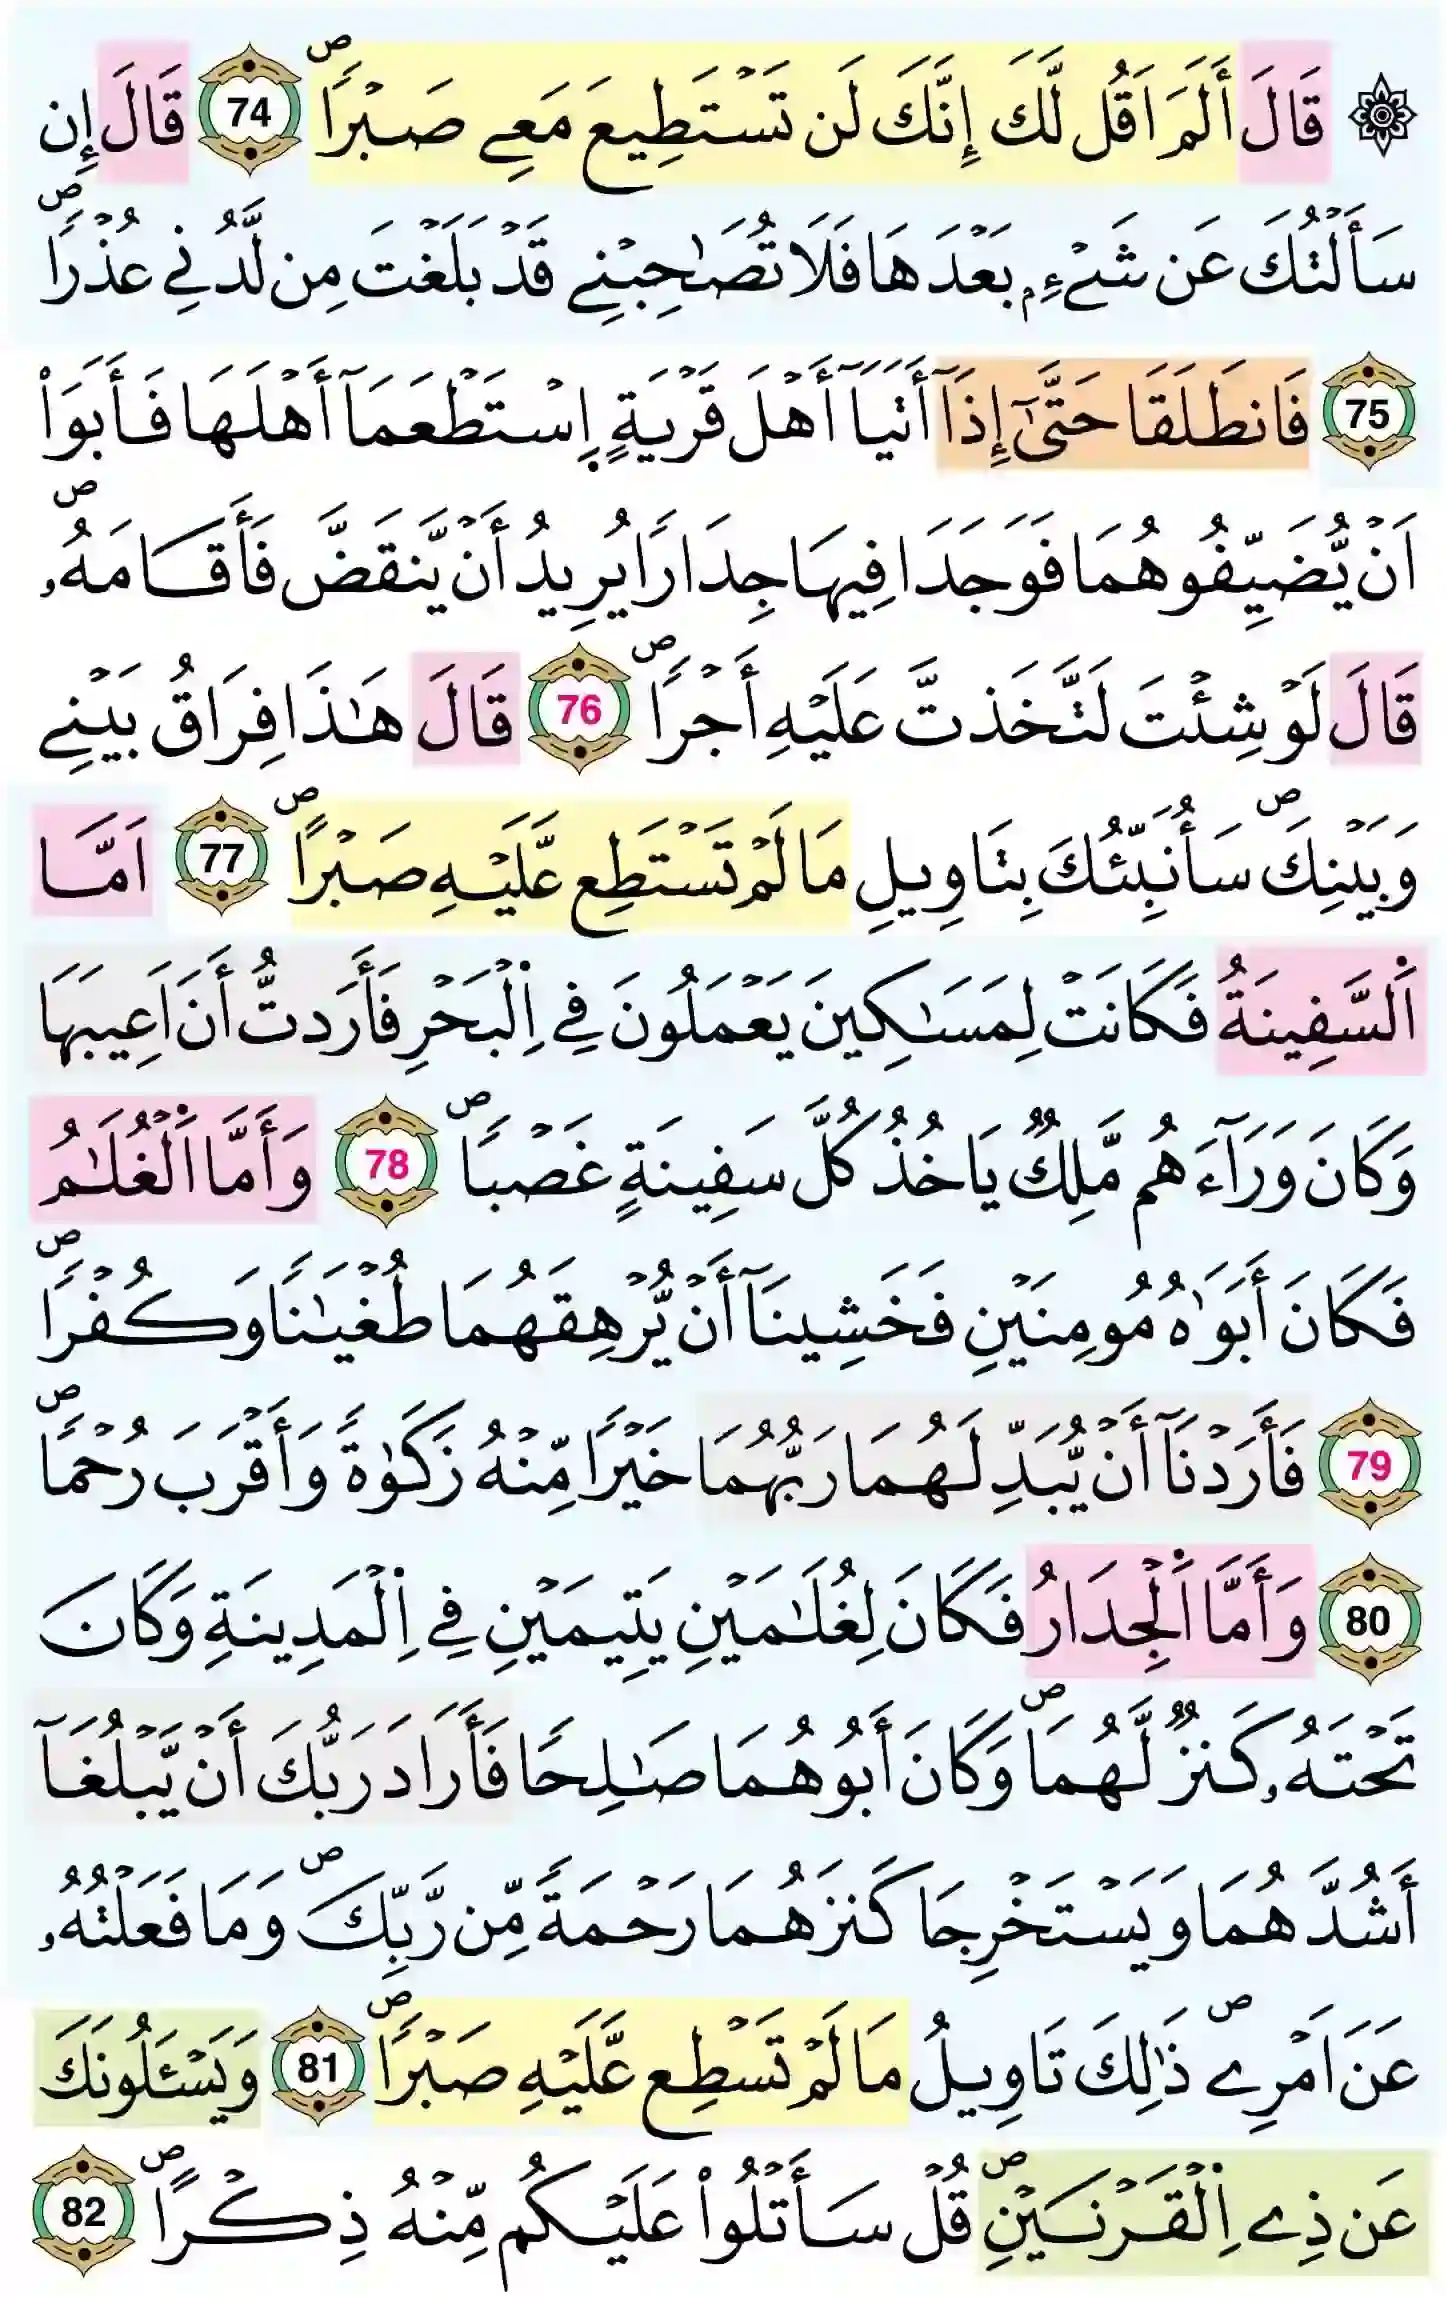 ۞ قَالَ أَلَمَ اَقُل لَّكَ إِنَّكَ لَن تَسْتَطِيعَ مَعِے صَبْراٗۖ 74 قَالَ إِن
سَأَلْتُكَ عَن شَےْءِۢ بَعْدَهَا فَلَا تُصَٰحِبْنِے قَدْ بَلَغْتَ مِن لَّدُنِے عُذْراٗۖ
75 فَانطَلَقَا حَتَّىٰٓ إِذَآ أَتَيَآ أَهْلَ قَرْيَةٍ اِ۪سْتَطْعَمَآ أَهْلَهَا فَأَبَوَاْ
اَنْ يُّضَيِّفُوهُمَا فَوَجَدَا فِيهَا جِدَاراٗ يُرِيدُ أَنْ يَّنقَضَّ فَأَقَامَهُۥۖ
قَالَ لَوْ شِئْتَ لَتَّخَذتَّ عَلَيْهِ أَجْراٗۖ 76 قَالَ هَٰذَا فِرَاقُ بَيْنِے
وَبَيْنِكَۖ سَأُنَبِّئُكَ بِتَاوِيلِ مَا لَمْ تَسْتَطِع عَّلَيْهِ صَبْراًۖ 77 اَمَّا
اَ۬لسَّفِينَةُ فَكَانَتْ لِمَسَٰكِينَ يَعْمَلُونَ فِے اِ۬لْبَحْرِ فَأَرَدتُّ أَنَ اَعِيبَهَا
وَكَانَ وَرَآءَهُم مَّلِكٞ يَاخُذُ كُلَّ سَفِينَةٍ غَصْباٗۖ 78 وَأَمَّا اَ۬لْغُلَٰمُ
فَكَانَ أَبَوَٰهُ مُومِنَيْنِ فَخَشِينَآ أَنْ يُّرْهِقَهُمَا طُغْيَٰناٗ وَكُفْراٗۖ
79 فَأَرَدْنَآ أَنْ يُّبَدِّلَهُمَا رَبُّهُمَا خَيْراٗ مِّنْهُ زَكَوٰةٗ وَأَقْرَبَ رُحْماٗۖ
80 وَأَمَّا اَ۬لْجِدَارُ فَكَانَ لِغُلَٰمَيْنِ يَتِيمَيْنِ فِے اِ۬لْمَدِينَةِ وَكَانَ
تَحْتَهُۥ كَنزٞ لَّهُمَاۖ وَكَانَ أَبُوهُمَا صَٰلِحاٗ فَأَرَادَ رَبُّكَ أَنْ يَّبْلُغَآ
أَشُدَّهُمَا وَيَسْتَخْرِجَا كَنزَهُمَا رَحْمَةٗ مِّن رَّبِّكَۖ وَمَا فَعَلْتُهُۥ
عَنَ اَمْرِےۖ ذَٰلِكَ تَاوِيلُ مَا لَمْ تَسْطِع عَّلَيْهِ صَبْراٗۖ 81 وَيَسْـَٔلُونَكَ
عَن ذِے اِ۬لْقَرْنَيْنِۖ قُلْ سَأَتْلُواْ عَلَيْكُم مِّنْهُ ذِكْراًۖ 82